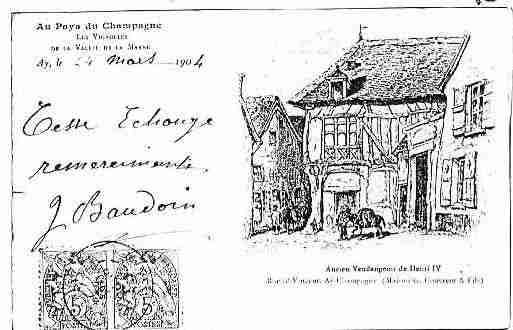 Au Pays du Champagne
Les Vignobles
de la Vallée de la Marne
Ay, le 24 mars 1904
Cesse Echange
remerciments
J Baudoin
5 5
POSTES
Ancien Vendangeoir de Henri IV
Ay Champagne (Maison & Fils)